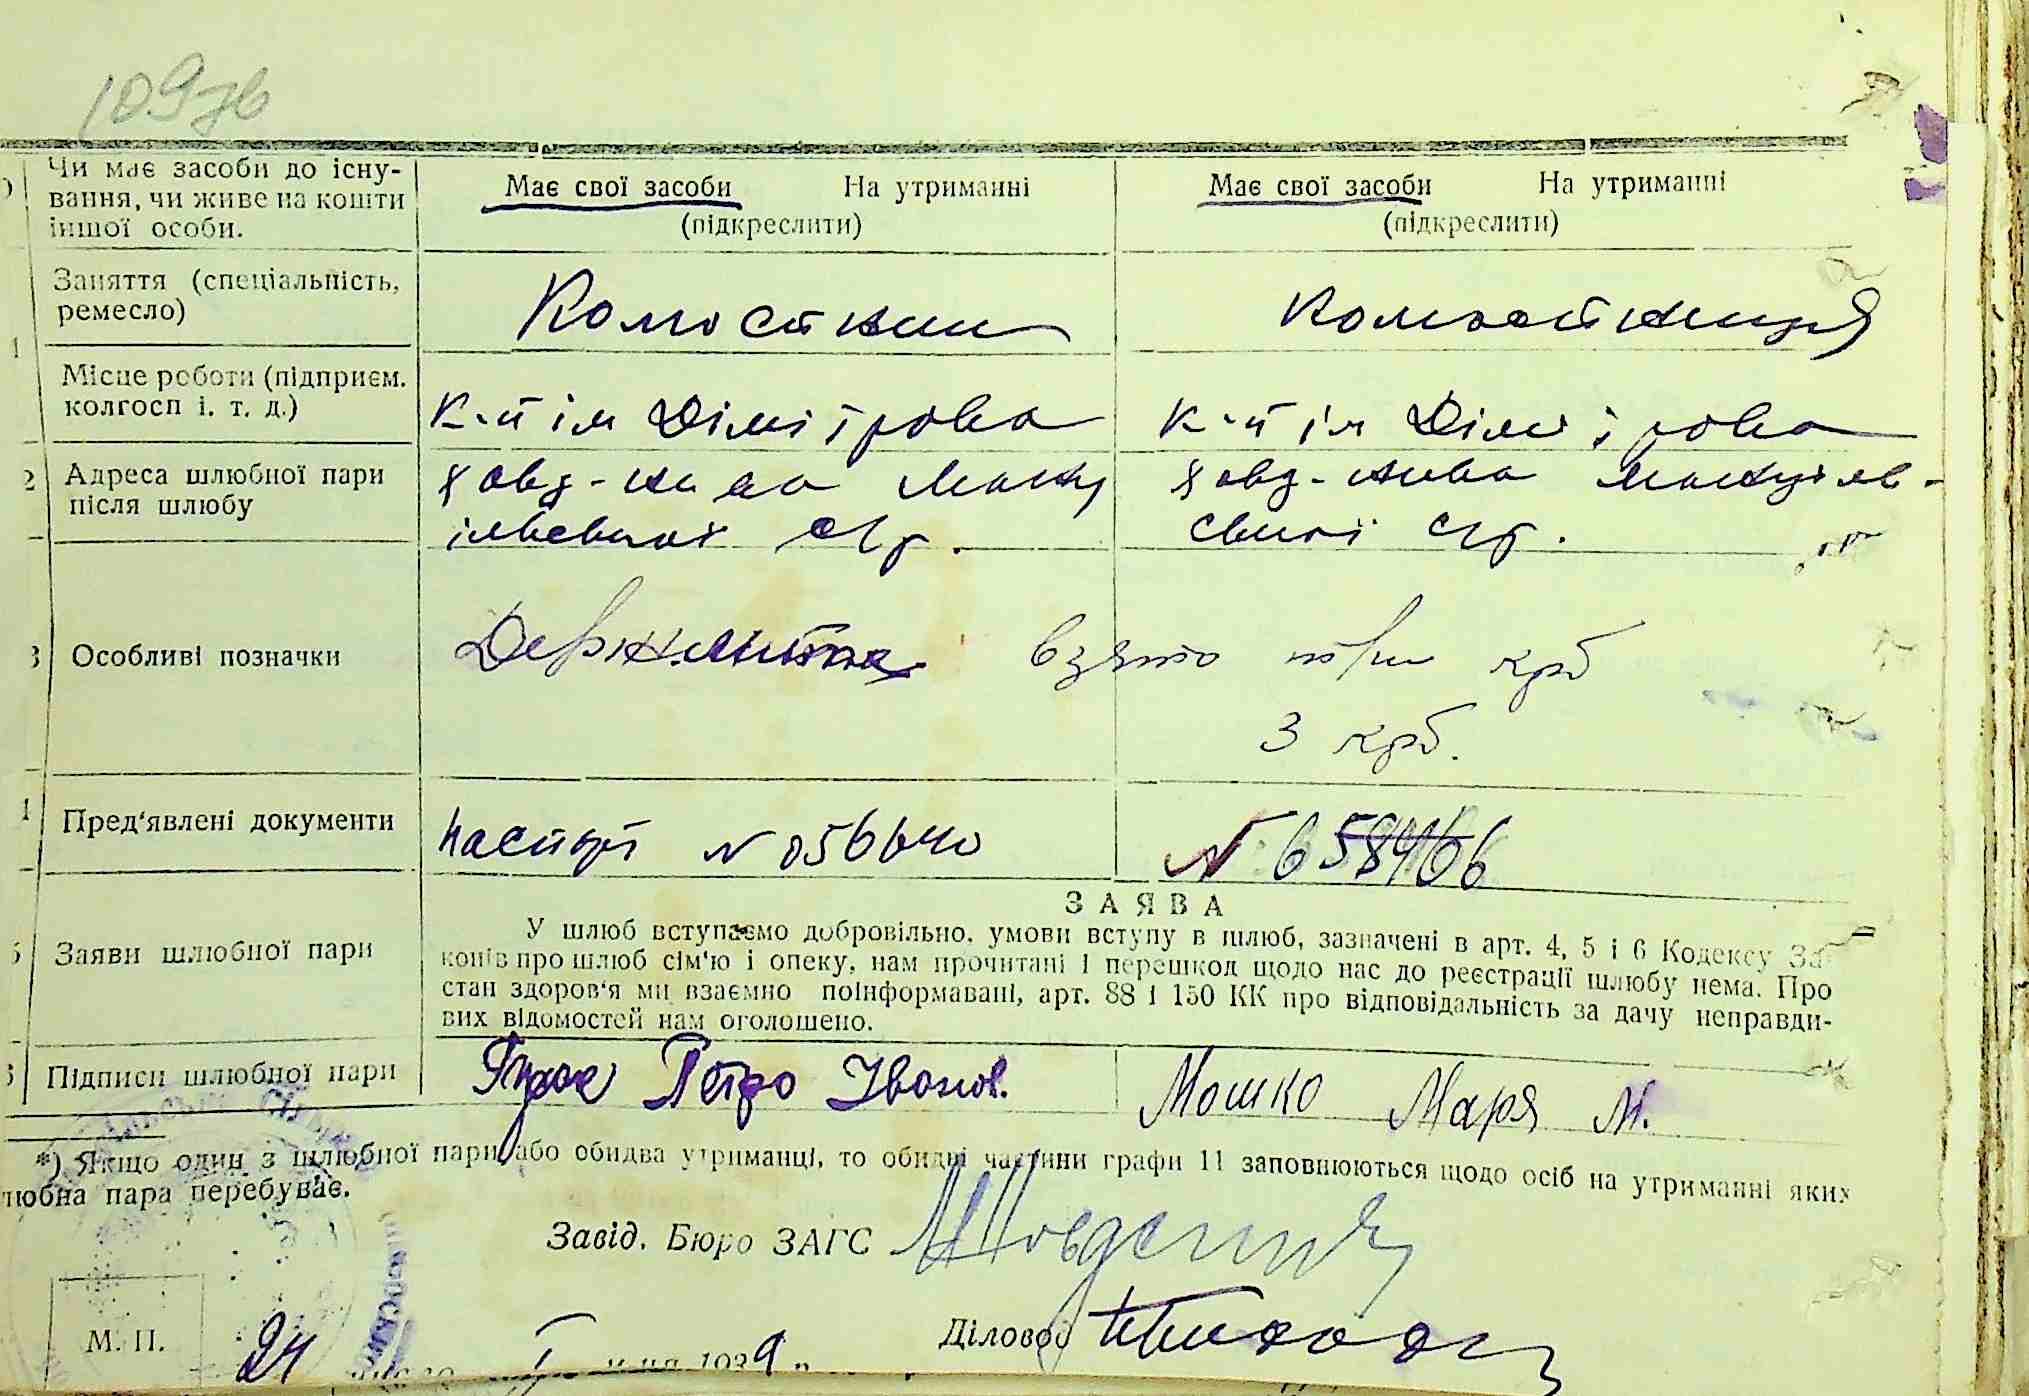 109зв
Чи має засоби до існу-
вання, чи живе на кошти
іншої особи.
Має свої засоби На утриманні
(підкреслити)
Має свої засоби На утриманні
(підкреслити)
Заняття (спеціальність,
ремесло)
Колгосп
Місце роботи (підприєм.
колгосп і. т. д.)
к-п ім Дімітрова
к-п ім Дімітрова
2 Адреса шлюбної пари
після шлюбу
ської с/р.
3 Особливі позначки
Держмито взято три крб
3 крб.
Пред'явлені документи
паспорт N 056640
N 658466
5 Заяви шлюбної пари
ЗАЯВА
У шлюб вступаємо добровільно, умови вступу в шлюб, зазначені в арт. 4, 5 і 6 Кодексу За-
конів про шлюб сім'ю і опеку, нам прочитані і перешкод щодо нас до реєстрації шлюбу нема. Про
стан здоров'я ми взаємно поінформавані, арт. 88 і 150 КК про відповідальність за дачу неправди-
вих відомостей нам оголошено.
Підписи шлюбної пари
Петро Іванов.
Мошко Маря М.
*) Якщо один з шлюбної пари, або обидва утриманці, то обидві частини графи 11 заповнюються щодо осіб на утриманні яких
любна пара перебуває.
Завід. Бюро ЗАГС
М. П.
24 1939 р.
Діловод